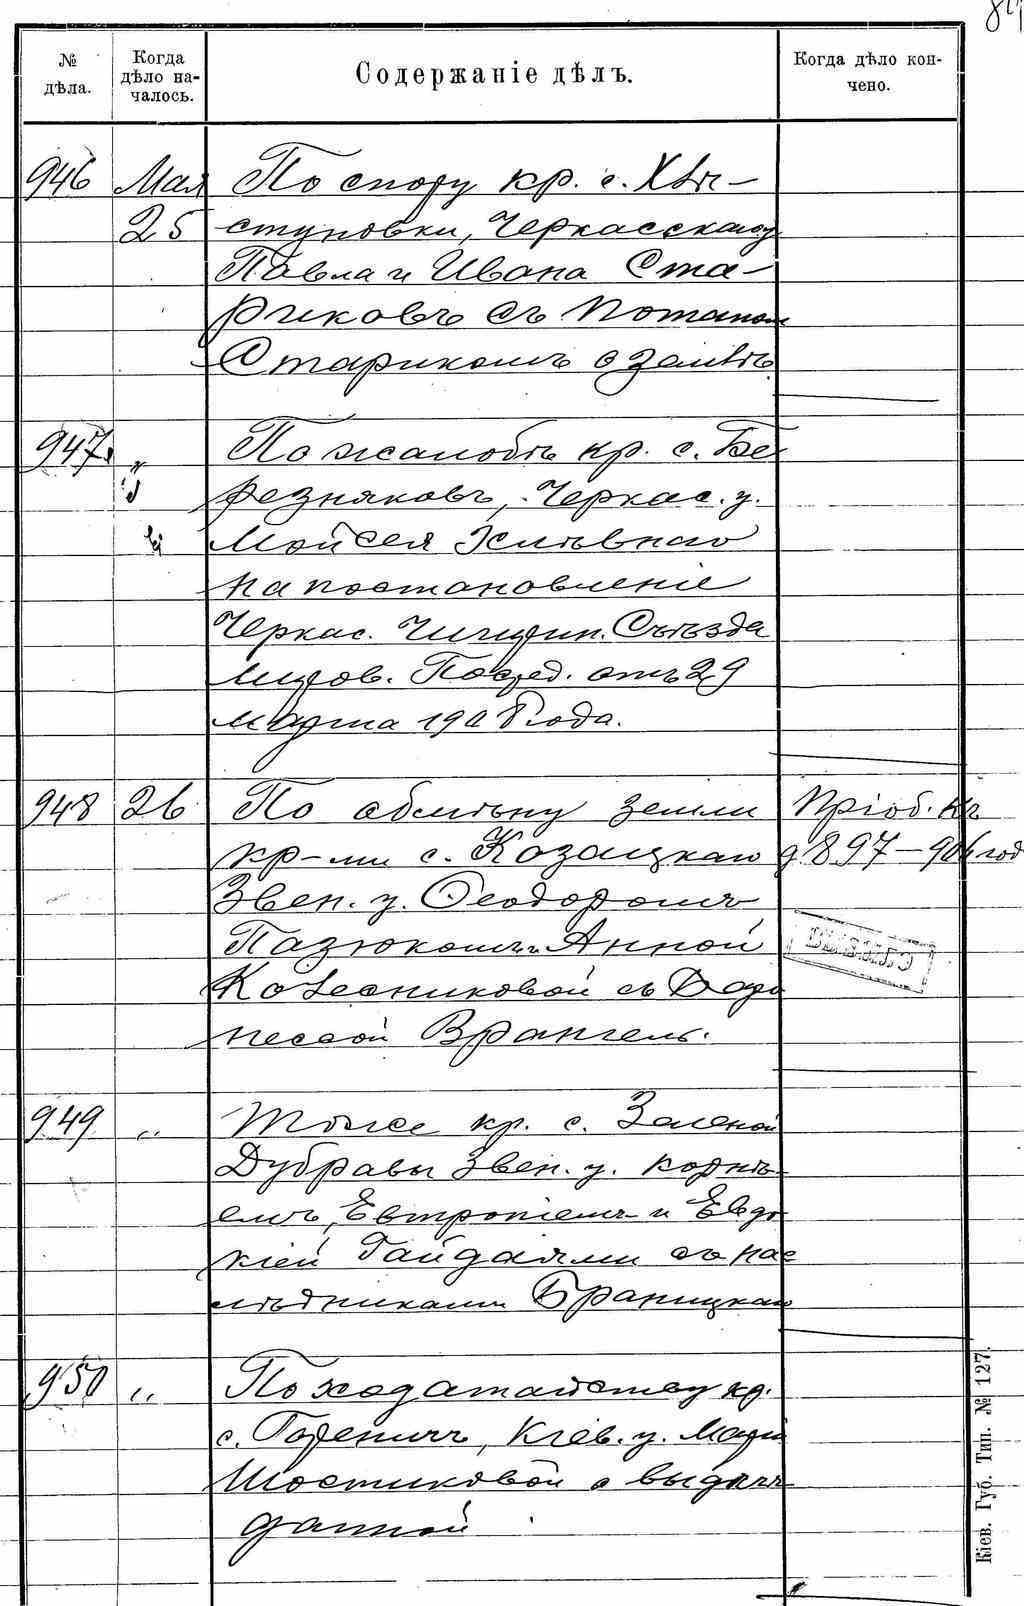 № дѣла.
Когда дѣло на-
чалось.
Содержаніе дѣлъ.
Когда дѣло кон-
чено.
946 Мая По спору кр. с. Хвы-
25 ступовки, Черкасскаго у.
Павла и Ивана Ста-
риковъ съ Потапом
Старикомъ о землѣ
947. " По жалобѣ кр. с. Бе-
резняковъ, Черкас. у.
Мойсея
на постановленіе
Черкас. Чигирин. Съѣзда
Миров. Посред. отъ 29
марта 1908 года.
948 26 По обмѣну земли Пріоб. къ
кр-ми с. Козацкаго д. 897–906 год
Звен. у. Ѳеодоромъ
Пазюкомъ и Анной
Колесниковой съ Баро
нессой Врангель.
949 " Тоже кр. с. Зеленой
Дубравы Звен. у. Корнѣ-
емъ, Евтропіемъ и Евдо
кіей Гайдаями съ нас
лѣдниками Браницкаго
950 " По ходатайству кр.
с. Гореничъ, Кіев. у. Маріи
Шостиковой о выдачѣ
данной
Кіев. Губ. Тип. № 127.